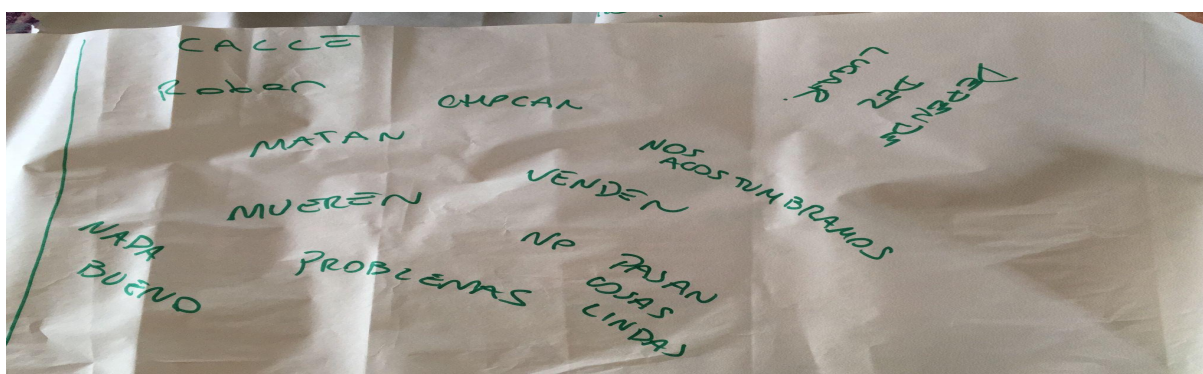 CALLE
Roban
CHOCAN
MATAN
NOS
ACOSTUMBRAMOS
VENDEN
MUEREN
NADA
BUENO
PROBLEMAS
NO PASAN
COSAS
LINDAS
DEPENDE
DEL
LUGAR.